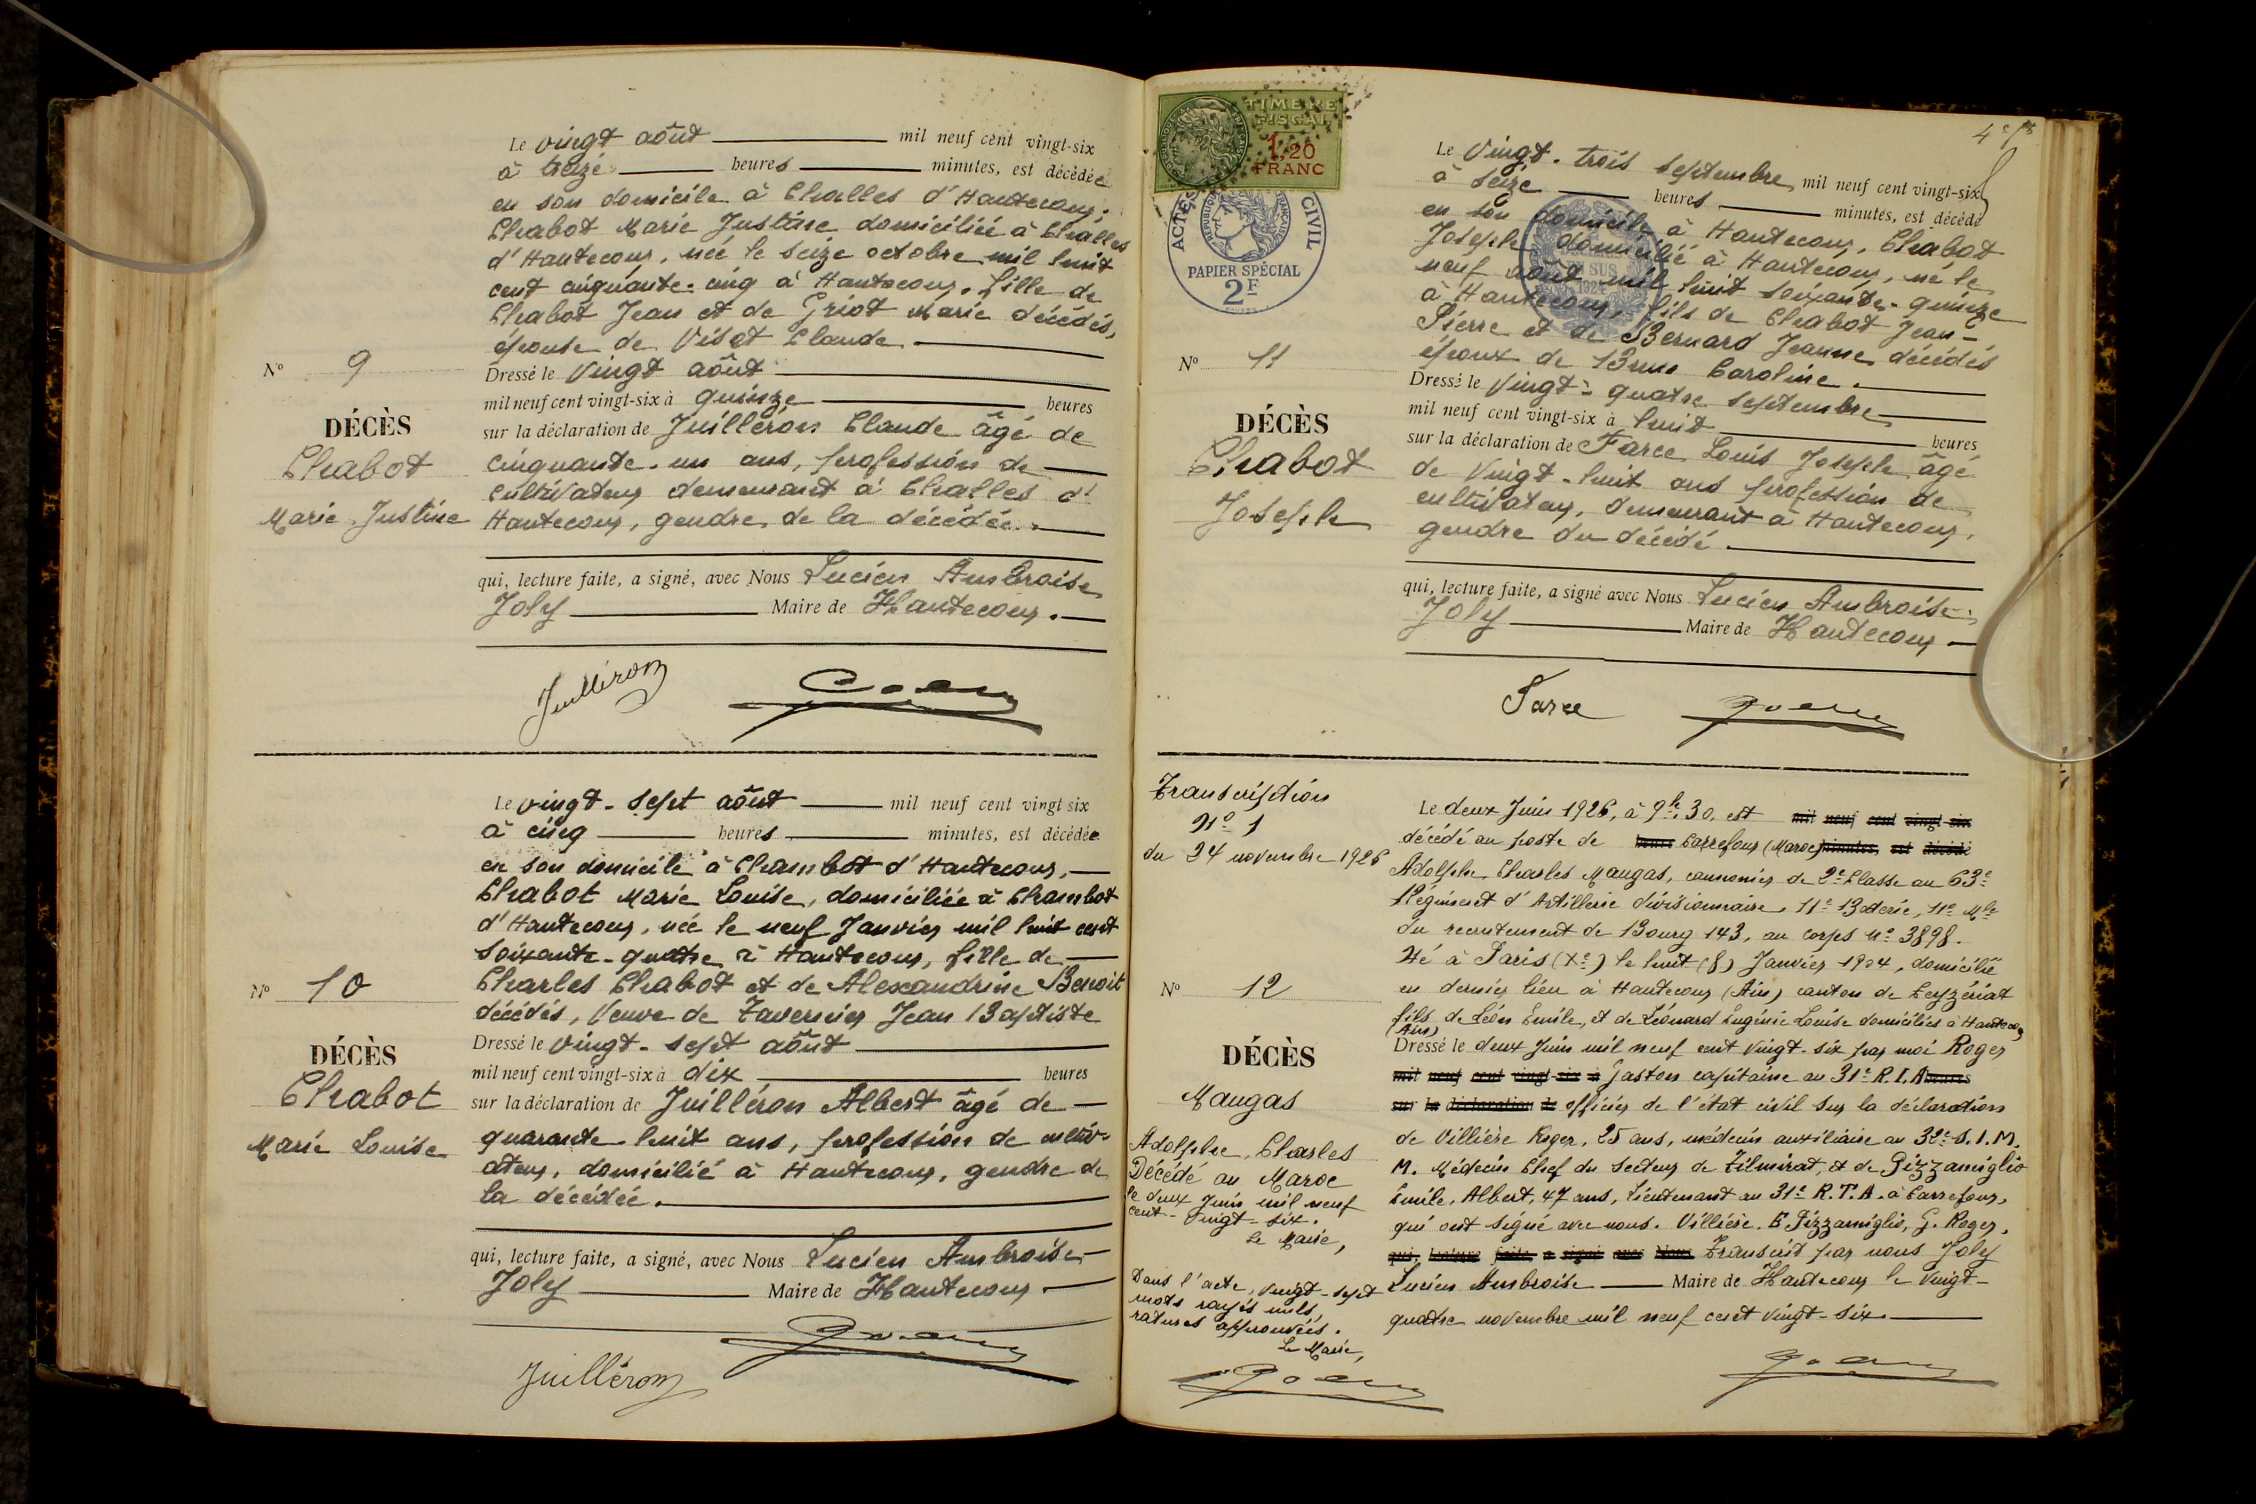 Le vingt août mil neuf cent vingt-six
à treize heures minutes, est décédée
en son domicile à Challes d'Hautecour,
Chabot Marie Justine domiciliée à Challes
d'Hautecour, née le seize octobre mil huit
cent cinquante-cinq à Hautecour, fille de
Chabot Jean et de Griot Marie décédés,
épouse de Visot Claude.
Nº 9
Dressé le vingt août
mil neuf cent vingt-six à quinze heures
DÉCÈS
sur la déclaration de Juilléron Claude âgé de
Chabot
cinquante-un ans, profession de
cultivateur demeurant à Challes d'
Marie Justine
Hautecour, gendre de la décédée.
qui, lecture faite, a signé, avec Nous Lucien Ambroise
Joly Maire de Hautecour.
Juilléron
Le vingt-sept août mil neuf cent vingt six
à cinq heures minutes, est décédée
en son domicile à Chambot d'Hautecour,
Chabot Marie Louise, domiciliée à Chambot
d'Hautecour, née le neuf Janvier mil huit cent
soixante-quatre à Hautecour, fille de
Nº 10
Charles Chabot et de Alexandrine Benoit
décédés, Veuve de Tavernier Jean Baptiste
DÉCÈS
Dressé le vingt-sept août
mil neuf cent vingt-six à dix heures
Chabot
sur la déclaration de Juilléron Albert âgé de
Marie Louise
quarante-huit ans, profession de cultiv-
ateur, domicilié à Hautecour, gendre de
la décédée.
qui, lecture faite, a signé, avec Nous Lucien Ambroise
Joly Maire de Hautecour
Juilléron
TIMBRE
FISCAL
1,20
FRANC
ACTES CIVIL
PAPIER SPÉCIAL
2F
Le vingt-trois septembre mil neuf cent vingt-six
à seize heures minutes, est décédé
en son domicile à Hautecour, Chabot
Joseph domicilié à Hautecour, né le
neuf août mil huit soixante-quinze
à Hautecour, fils de Chabot Jean-
Pierre et de Bernard Jeanne décédés
époux de Brun Caroline.
Nº 11
Dressé le vingt-quatre septembre
mil neuf cent vingt-six à huit heures
DÉCÈS
sur la déclaration de Farce Louis Joseph âgé
Chabot
de vingt-huit ans profession de
Joseph
cultivateur, demeurant à Hautecour,
gendre du décédé.
qui, lecture faite, a signé avec Nous Lucien Ambroise
Joly Maire de Hautecour
Farce
Transcription
nº 1
du 24 novembre 1926
Le deux Juin 1926, à 9h. 30. est mil neuf cent vingt-six
décédé au poste de heures Carrefour (Maroc) minutes, est décédé
Adolphe, Charles Maugas, canonnier de 2e Classe au 63e
Régiment d'Artillerie divisionnaire, 11e Batterie, nº Mle
du recrutement de Bourg 143, au corps nº 3898.
Né à Paris (Xe) le huit (8) Janvier 1904, domicilié
Nº 12
en dernier lieu à Hautecour (Ain) canton de Ceyzériat
fils de Léon Emile, et de Léonard Eugénie Louise domiciliés à Hautecour
(Ain)
DÉCÈS
Dressé le deux juin mil neuf cent vingt-six par moi Roger
mil neuf cent vingt-six à Gaston capitaine au 31e R.T.A heures
Maugas
sur la déclaration de officier de l'état civil sur la déclaration
Adolphe, Charles
de Villière Roger, 25 ans, médecin auxiliaire au 32e S.I.M.
Décédé au Maroc
M. Médecin Chef du Secteur de Tilmirat, et de Pizzamiglio
le deux Juin mil neuf
Emile, Albert, 47 ans, Lieutenant au 31e R.T.A. à Carrefour,
cent-vingt-six.
qui ont signé avec nous. Villière. E Pizzamiglio, G. Roger.
Le Maire,
qui, lecture faite, a signé avec Nous Transcrit par nous Joly
Dans l'acte, vingt-sept
Lucien Ambroise Maire de Hautecour le vingt-
mots rayés nuls,
quatre novembre mil neuf cent vingt-six.
ratures approuvées.
Le Maire,